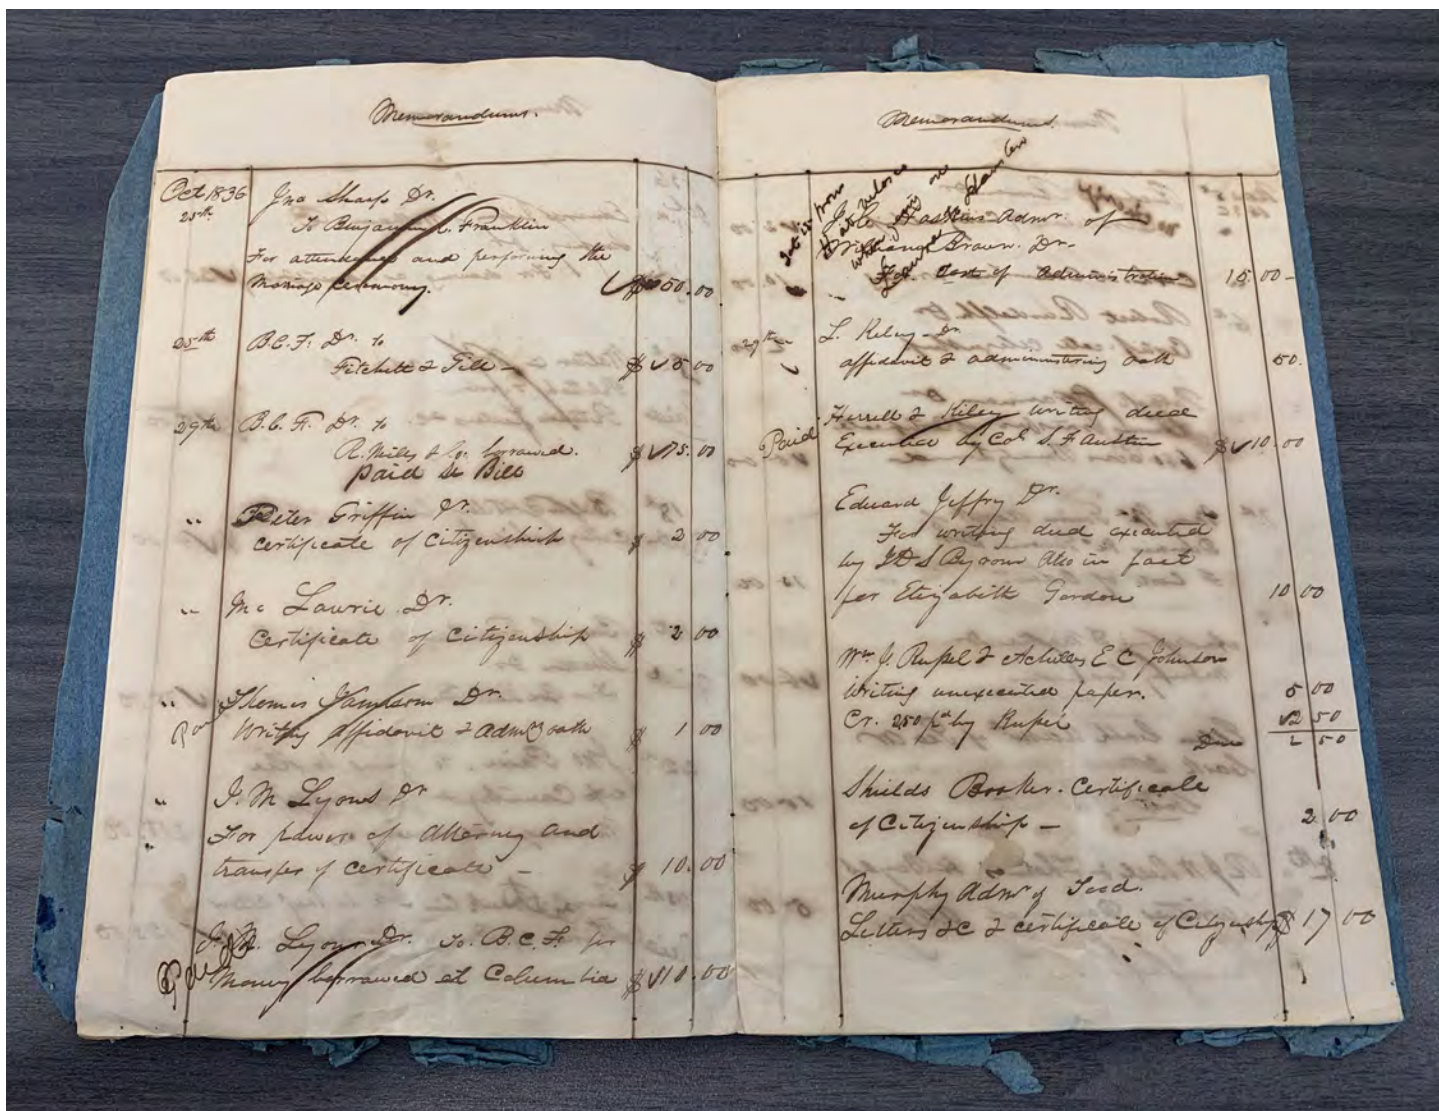 Memorandums.
Oct 1836
25th Jno Sharp Dr.
To Benjamin C. Franklin
For attendance and performing the
Marriage Ceremony. $50.00
25th B.C.F. Dr. to
Fitchett & Gill — $5 00
29th B.C.F. Dr. to
R. Mills & Co. borrowed. $75.00
paid see Bill
" Peter Griffin Dr.
Certificate of Citizenship $2 00
" Mc Lawrie Dr.
Certificate of Citizenship $2 00
" Thomas Jamison Dr.
Writing affidavit & Admg oath $1 00
" J. M Lyons Dr
For power of Attorney and
transfer of certificate — $10.00
Paid J. M. Lyons Dr. To. B.C.F. for
Money borrowed at Columbia $10.00
Memorandums.
Admr. of
Brown. Dr-
For Cost of administration 15.00-
29th L. Kelsey Dr
affidavit & administering oath 50.
Paid Harrell & Kelsey writing deed
Executed by Col S. F Austin $10.00
Edward Jeffry Dr.
For writing deed executed
by in fact
for Elizabeth Gordon 10 00
Wm J. Russel & Achilles E C Johnson
Writing unexecuted papers. 5 00
Cr. 250 pd by Russel 2 50
Due 2 50
Shields Booker. Certificate
of Citizenship — 2 00
Murphy Admr of Tood.
Letters &C & certificate of Citizenship $17 00